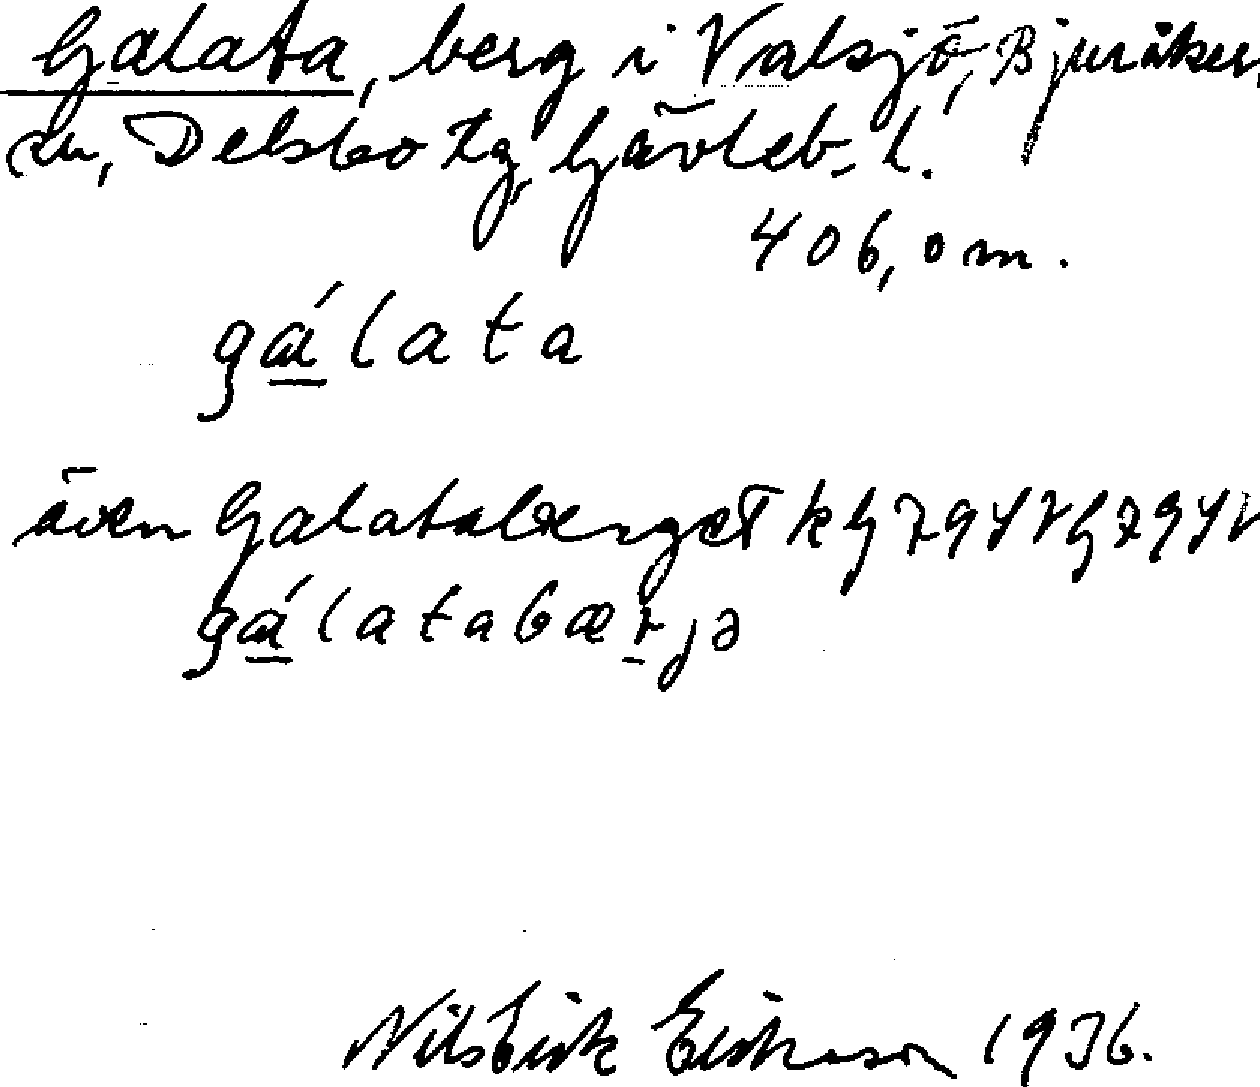 Galata, berg i Valsjö, Bjuråker,
sn, Delsbo tg, Gävleb. l.
406,0 m.
gálata
även Galataberget
gálatabærjə
Nils Erik Eriksson 1936.